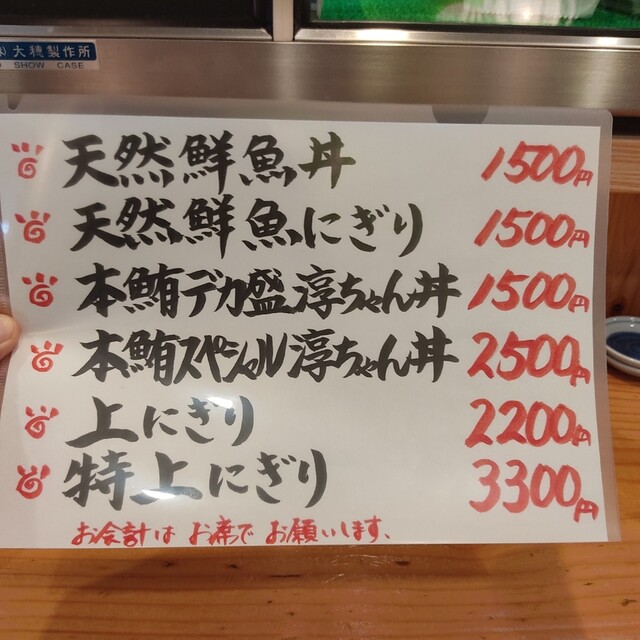 大穂製作所
SHOW CASE
天然鮮魚丼 1500円
天然鮮魚にぎり 1500円
本鮪デカ盛淳ちゃん丼 1500円
本鮪スペシャル淳ちゃん丼 2500円
上にぎり 2200円
特上にぎり 3300円
お会計は お席で お願いします、